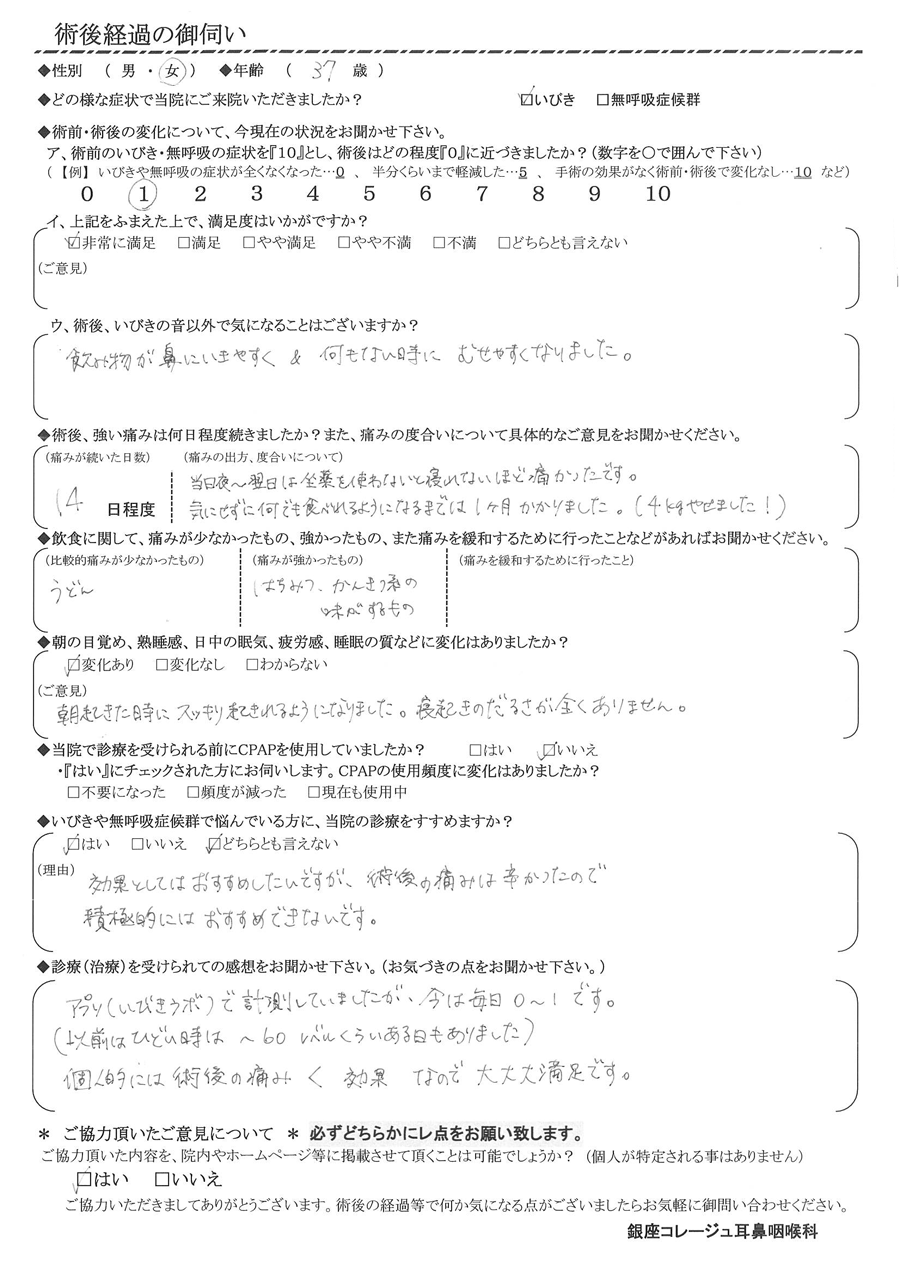 術後経過の御伺い
◆性別 （ 男 ・ 女 ） ◆年齢 （ 37 歳 ）
◆どの様な症状で当院にご来院いただきましたか？ ☑いびき □無呼吸症候群
◆術前・術後の変化について、今現在の状況をお聞かせ下さい。
ア、術前のいびき・無呼吸の症状を『10』とし、術後はどの程度『0』に近づきましたか？（数字を○で囲んで下さい）
（【例】 いびきや無呼吸の症状が全くなくなった…0 、 半分くらいまで軽減した…5 、 手術の効果がなく術前・術後で変化なし…10 など）
0 1 2 3 4 5 6 7 8 9 10
イ、上記をふまえた上で、満足度はいかがですか？
☑非常に満足 □満足 □やや満足 □やや不満 □不満 □どちらとも言えない
（ご意見）
ウ、術後、いびきの音以外で気になることはございますか？
飲み物が鼻にいきやすく & 何もない時に むせやすくなりました。
◆術後、強い痛みは何日程度続きましたか？また、痛みの度合いについて具体的なご意見をお聞かせください。
（痛みが続いた日数） （痛みの出方、度合いについて）
当日夜～翌日は坐薬を使わないと寝れないほど痛かったです。
14 日程度 気にせずに何でも食べれるようになるまでは1ヶ月かかりました。（4kgやせました！）
◆飲食に関して、痛みが少なかったもの、強かったもの、また痛みを緩和するために行ったことなどがあればお聞かせください。
（比較的痛みが少なかったもの） （痛みが強かったもの） （痛みを緩和するために行ったこと）
うどん はちみつ、かんきつ系の
味がするもの
◆朝の目覚め、熟睡感、日中の眠気、疲労感、睡眠の質などに変化はありましたか？
☑変化あり □変化なし □わからない
（ご意見）
朝起きた時にスッキリ起きれるようになりました。寝起きのだるさが全くありません。
◆当院で診療を受けられる前にCPAPを使用していましたか？ □はい ☑いいえ
・『はい』にチェックされた方にお伺いします。CPAPの使用頻度に変化はありましたか？
□不要になった □頻度が減った □現在も使用中
◆いびきや無呼吸症候群で悩んでいる方に、当院の診療をすすめますか？
☑はい □いいえ ☑どちらとも言えない
（理由） 効果としてはおすすめしたいですが、術後の痛みは辛かったので
積極的にはおすすめできないです。
◆診療（治療）を受けられての感想をお聞かせ下さい。（お気づきの点をお聞かせ下さい。）
アプリ（いびきラボ）で計測していましたが、今は毎日0～1です。
（以前はひどい時は ～60 レベルくらいある日もありました）
個人的には術後の痛み く 効果 なので 大大大満足です。
＊ ご協力頂いたご意見について ＊ 必ずどちらかにレ点をお願い致します。
ご協力頂いた内容を、院内やホームページ等に掲載させて頂くことは可能でしょうか？ （個人が特定される事はありません）
☑はい □いいえ
ご協力いただきましてありがとうございます。術後の経過等で何か気になる点がございましたらお気軽に御問い合わせください。
銀座コレージュ耳鼻咽喉科